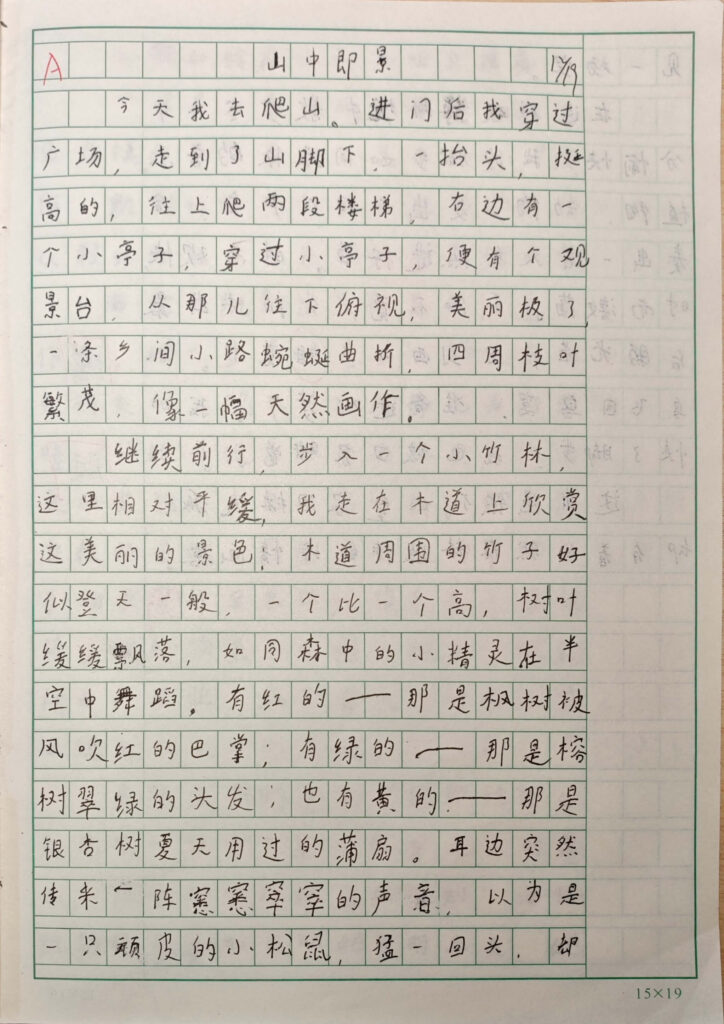 A 山中即景 12/19
今天我去爬山。进门后我穿过
广场，走到了山脚下，一抬头，挺
高的，往上爬两段楼梯，右边有一
个小亭子，穿过小亭子，便有个观
景台，从那儿往下俯视，美丽极了，
一条乡间小路蜿蜒曲折，四周枝叶
繁茂，像一幅天然画作。
继续前行，步入一个小竹林，
这里相对平缓，我走在木道上欣赏
这美丽的景色，木道周围的竹子好
似登天一般，一个比一个高，树叶
缓缓飘落，如同森中的小精灵在半
空中舞蹈。有红的——那是枫树被
风吹红的巴掌；有绿的——那是榕
树翠绿的头发；也有黄的——那是
银杏树夏天用过的蒲扇。耳边突然
传来一阵窸窸窣窣的声音，以为是
一只顽皮的小松鼠，猛一回头，却
15×19